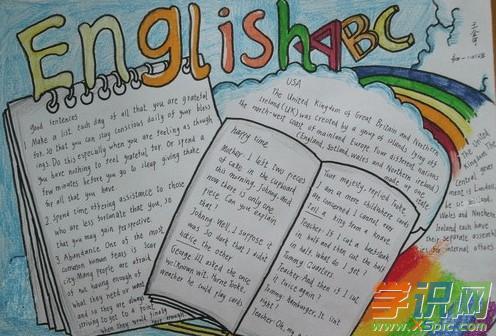 English ABC
Good sentences
1 Make a list each day of all that you are grateful
for, so that you can stay conscious daily of your bless
ings. Do this especially when you are feeling as though
you have nothing to feel grateful for. Or spend a
few minutes before you go to sleep giving thanks
for all that you have
2 Spend time offering assistance to those
who are less fortunate that you, so
that you may gain perspective.
3 Abundance. One of the most
common human fears is scar
city. Many people are afraid
of not having enough of
what they need or want
and so they are always
striving to get to a point
when they would finally enough
USA
The United Kingdom of Great Britain and Northern
Ireland (UK) was created by a group of islands lying off
the north-west coast of mainland Europe. Four different nations
(England, Scotland, wales and Northern Ireland)
make up one
state
The United
Kingdom
Central
ment
is London
Wales and Northern
Ireland each have
their separate
internal affairs
happy time
Mother: I left two pieces
of cake in the cupboard
this morning, Johnny, and
now there is only one
piece. Can you explain
that?
Johnny: Well, I suppose it
was so dark that I didn't
notice the other
George III asked the once
whether he could play cards
Your majesty, replied
I am a mere
are concerned I cannot even
tell a king from a knave.
Teacher: If I cut a beefsteak
in half and then cut the half
in half, what do I get?
Tommy: Quarters.
Teacher: And then if I cut
it twice again?
Tommy: hamburger.
right?
Teacher: Oh, my
学识网
X5pic.com